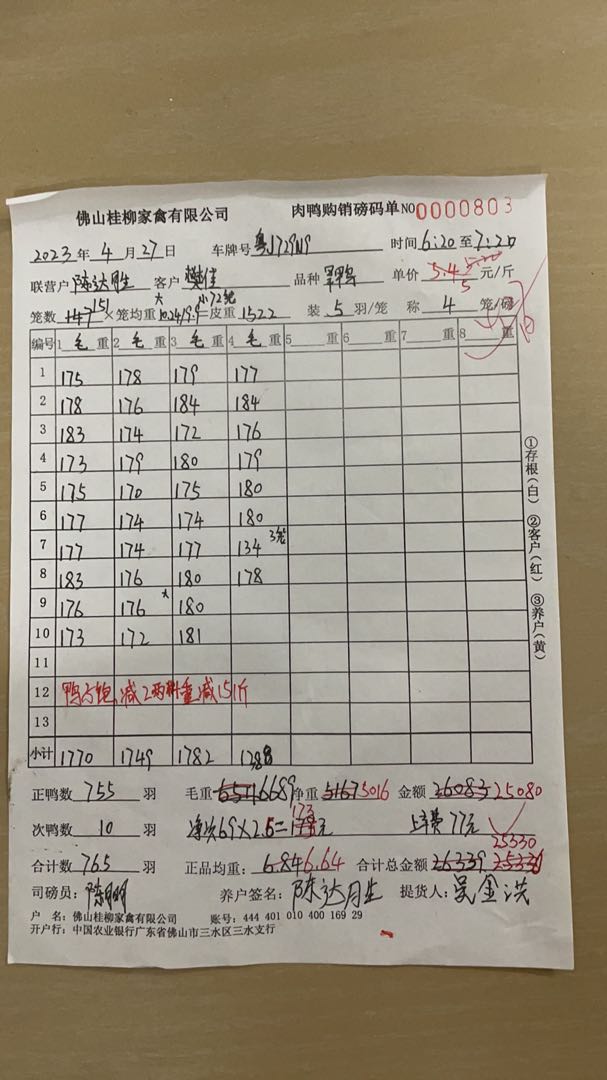 佛山桂柳家禽有限公司 肉鸭购销磅码单 NO 0000803
2023 年 4 月 27 日 车牌号 粤J729N9 时间 6:20 至 7:20
联营户 陈达月生 客户 樊佳 品种 罩鸭 单价 5.45 5 元/斤
笼数 147 151 × 笼均重 大10.24/9.9 小72笼 = 皮重 1522 装 5 羽/笼 称 4 笼/磅
编号 1 毛 重 2 毛 重 3 毛 重 4 毛 重 5 重 6 重 7 重 8 重
1 175 178 179 177
2 178 176 184 184
3 183 174 172 176
4 173 179 180 179
5 175 170 175 180
6 177 174 174 180
7 177 174 177 134 3笼
8 183 176 180 178
9 176 176 180
10 173 172 181
11
12 鸭为饱,减2两料重减151斤
13
小计 1770 1749 1782 1388
正鸭数 755 羽 毛重 6689 净重 5167 5016 金额 26083 25080
次鸭数 10 羽 净次69×2.5= 173元 上车费 77元
25330
合计数 765 羽 正品均重: 6.84 6.64 合计总金额 26339 25330
司磅员: 养户签名: 陈达月生 提货人: 吴金洪
户 名: 佛山桂柳家禽有限公司 账号: 444 401 010 400 169 29
开户行: 中国农业银行广东省佛山市三水区三水支行
①存根(白) ②客户(红) ③养户(黄)